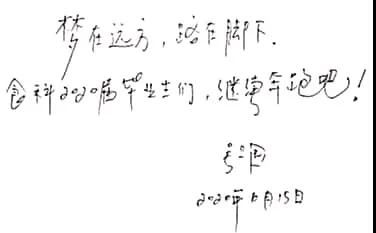 梦在远方，路在脚下.
食科2020届毕业生们，继续奔跑吧！
2020年6月15日